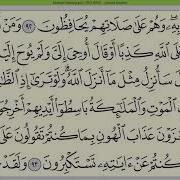 بِهِۦ ۖ وَهُمْ عَلَىٰ صَلَاتِهِمْ يُحَافِظُونَ ٩٢ وَمَنْ
عَلَى ٱللَّهِ كَذِبًا أَوْ قَالَ أُوحِىَ إِلَىَّ وَلَمْ يُوحَ إِلَيْ
سَأُنزِلُ مِثْلَ مَآ أَنزَلَ ٱللَّهُ ۗ وَلَوْ تَرَىٰٓ إِذِ ٱلظَّٰ
ٱلْمَوْتِ وَٱلْمَلَٰٓئِكَةُ بَاسِطُوٓا۟ أَيْدِيهِمْ أَخْرِجُو
زَوْنَ عَذَابَ ٱلْهُونِ بِمَا كُنتُمْ تَقُولُونَ عَلَى
كُنتُمْ عَنْ ءَايَٰتِهِۦ تَسْتَكْبِرُونَ ٩٣ وَلَقَدْ